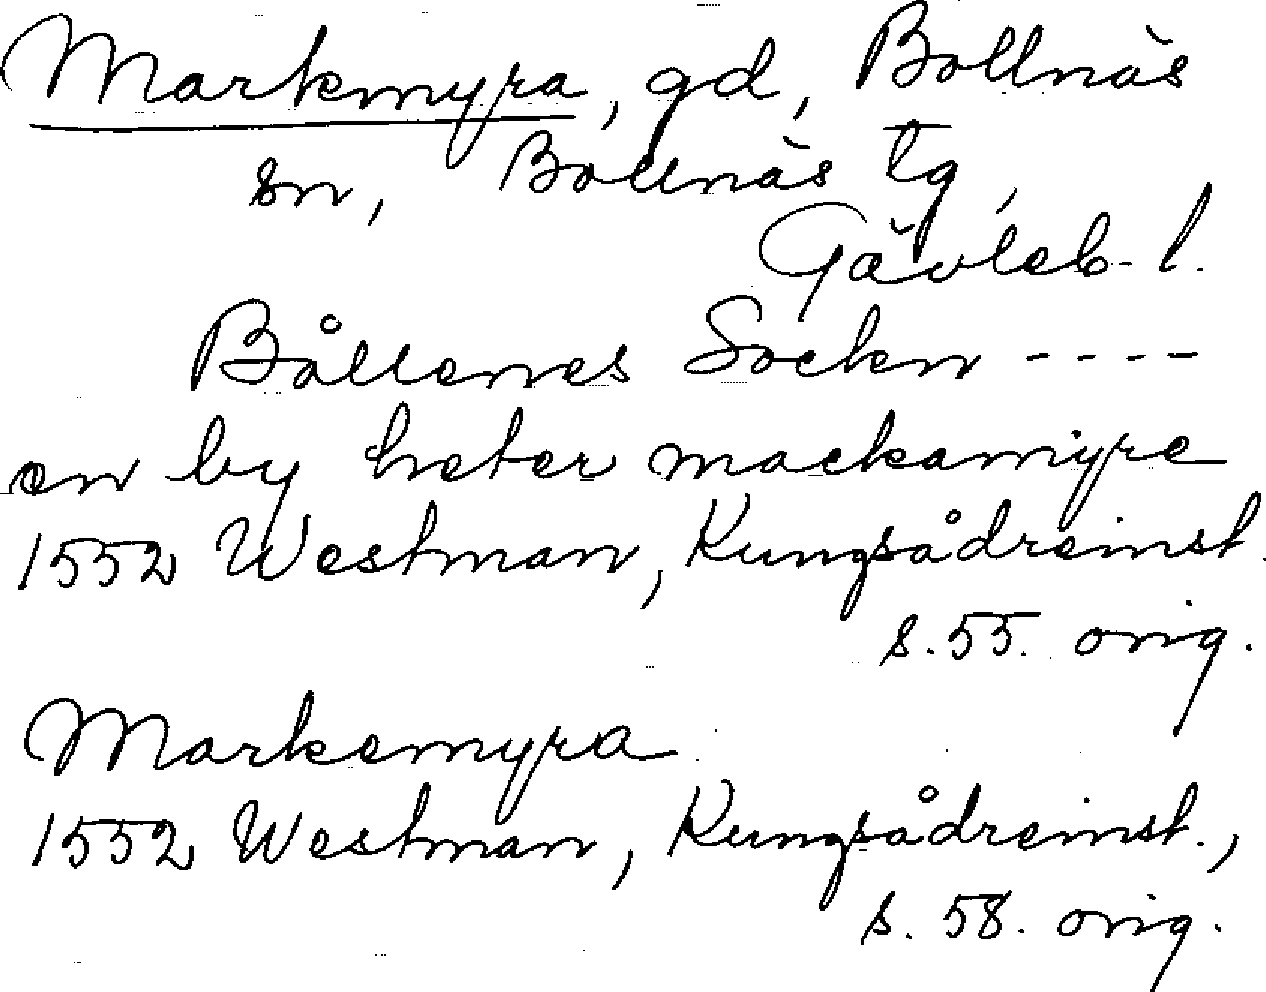 Markmyra, gd, Bollnäs
sn, Bollnäs tg,
Gävleb. l.
Bållenes Socken ----
en by heter mackamyre
1552 Westman, Kungsådreinst.
s. 55. orig.
Markemyra
1552 Westman, Kungsådreinst.,
s. 58. orig.